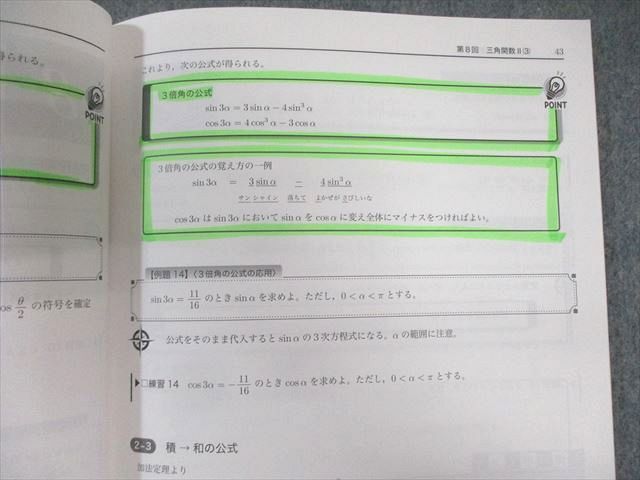 第8回 三角関数Ⅱ(3) 43
これより，次の公式が得られる。
3倍角の公式
POINT
sin 3α = 3 sin α − 4 sin³ α
cos 3α = 4 cos³ α − 3 cos α
3倍角の公式の覚え方の一例
sin 3α = 3 sin α − 4 sin³ α
サンシャイン 落ちて よかぜが さびしいな
cos 3α は sin 3α において sin α を cos α に変え全体にマイナスをつければよい。
【例題 14】〈3倍角の公式の応用〉
sin 3α = 11/16 のとき sin α を求めよ。ただし，0 < α < π とする。
公式をそのまま代入すると sin α の3次方程式になる。α の範囲に注意。
▶□練習 14 cos 3α = −11/16 のとき cos α を求めよ。ただし，0 < α < π とする。
2-3 積 → 和の公式
加法定理より
得られる。
POINT
os θ/2 の符号を確定